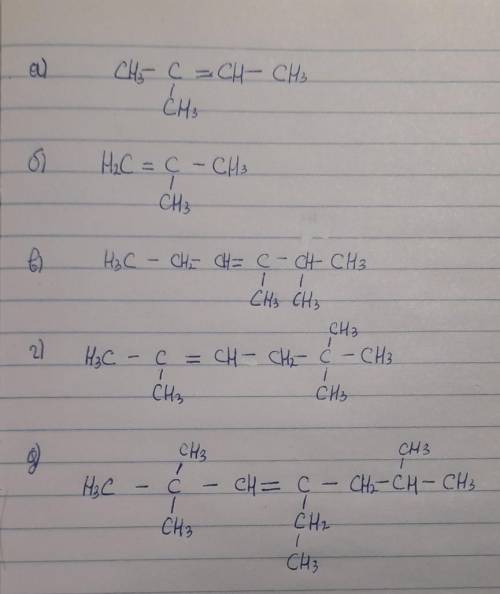 а) CH3 - C = CH - CH3
CH3
б) H2C = C - CH3
CH3
в) H3C - CH2 - CH = C - CH - CH3
CH3 CH3
CH3
г) H3C - C = CH - CH2 - C - CH3
CH3 CH3
CH3 CH3
д) H3C - C - CH = C - CH2 - CH - CH3
CH3 CH2
CH3